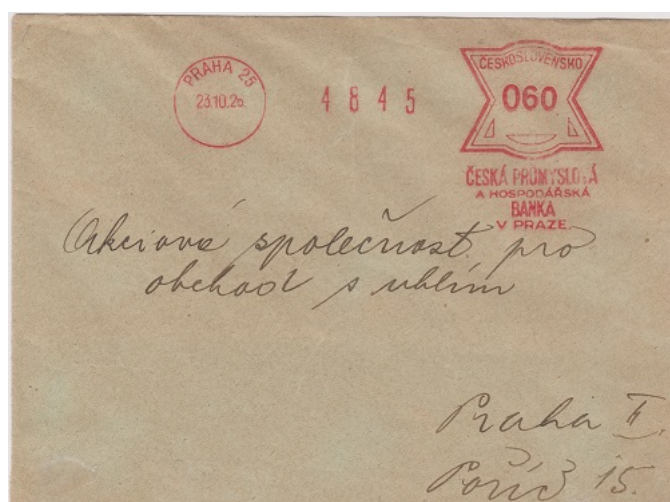 PRAHA 25
23.10.26.
4845
ČESKOSLOVENSKO
060
ČESKÁ PRŮMYSLOVÁ
A HOSPODÁŘSKÁ
BANKA
V PRAZE.
Akciová společnost pro
obchod s uhlím
Praha II.
Poříč 15.